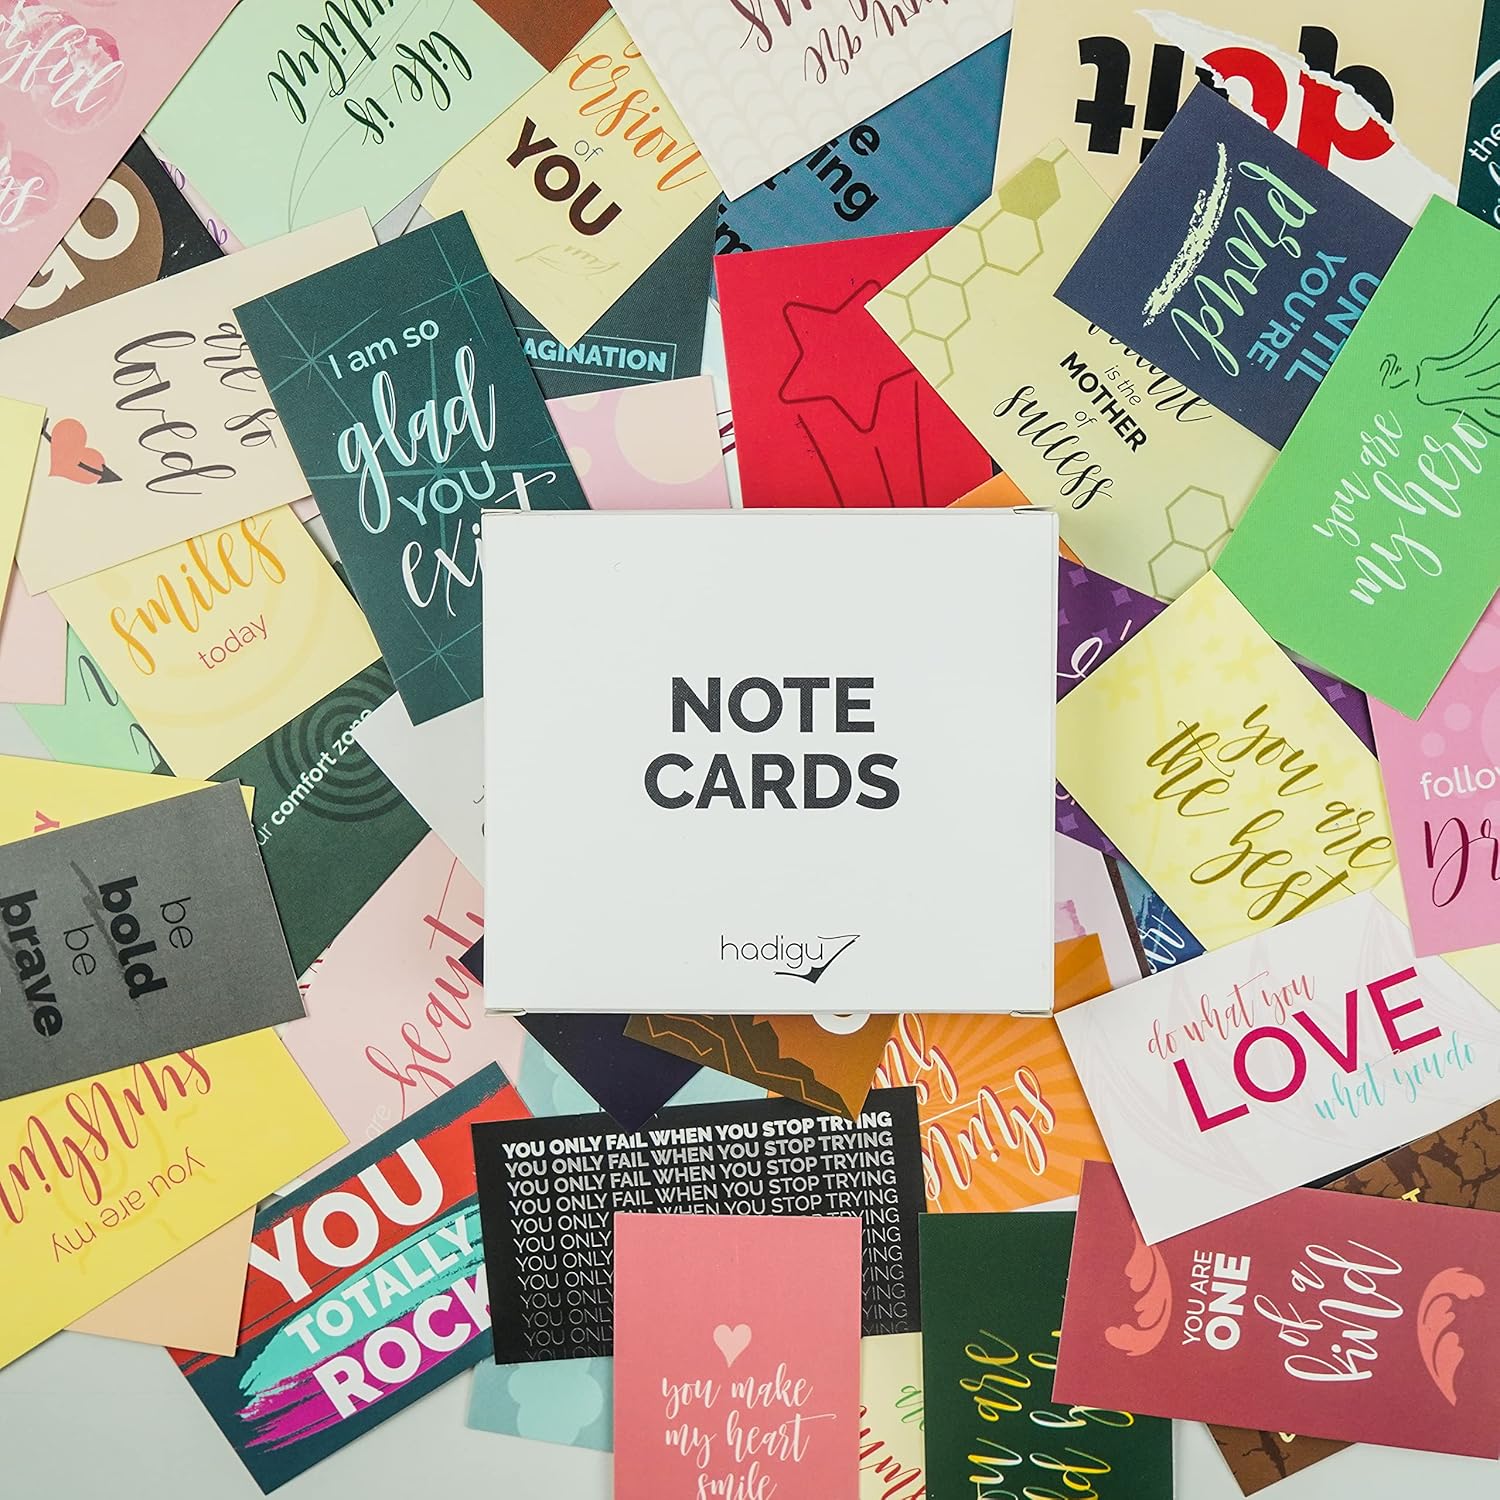 life is
version
of
YOU
you are
do it
the
UNTIL
YOU'RE
proud
are so
loved
I am so
glad
YOU
exist
AGINATION
is the
MOTHER
of
success
you are
my hero
smiles
today
ur comfort zone
NOTE
CARDS
hadigu
you are
the best
follow
be
bold
be
brave
you are my
are
do what you
LOVE
what you do
YOU ONLY FAIL WHEN YOU STOP TRYING
YOU ONLY FAIL WHEN YOU STOP TRYING
YOU ONLY FAIL WHEN YOU STOP TRYING
YOU ONLY FAIL WHEN YOU STOP TRYING
YOU ONLY
YOU ONLY
YOU ONLY
YOU ONLY
YOU ONLY
YOU ONLY
YOU ONLY
YOU
TOTALLY
ROCK
YOU ARE
ONE
of a
kind
you make
my heart
smile
you are